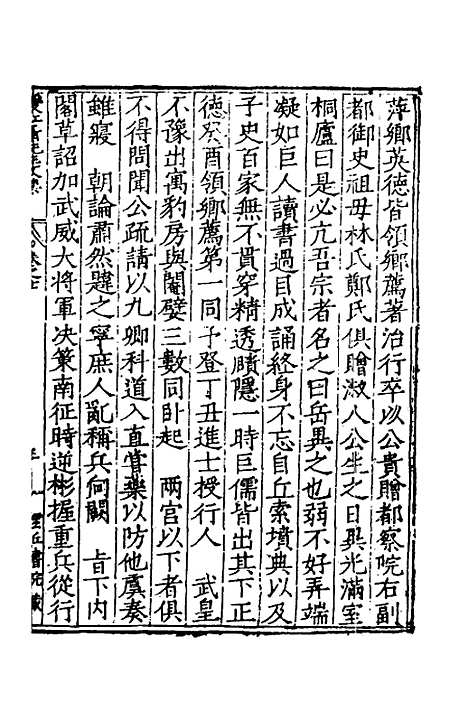 萍鄉英德皆領鄉薦著治行卒以公貴贈都察院右副
都御史祖母林氏鄭氏俱贈淑人公生之日異光滿室
桐廬曰是必亢吾宗者名之曰岳異之也弱不好弄端
凝如巨人讀書過目成誦終身不忘自丘索墳典以及
子史百家無不貫穿精透賾隱一時巨儒皆出其下正
德癸酉領鄉薦第一同子登丁丑進士授行人 武皇
不豫出寓豹房與閹孽三數同卧起 兩宮以下者俱
不得問聞公疏請以九卿科道入直嘗藥以防他虞奏
雖寢 朝論肅然韙之寧庶人亂稱兵向闕 旨下内
閣草詔加武威大將軍决策南征時逆彬握重兵從行